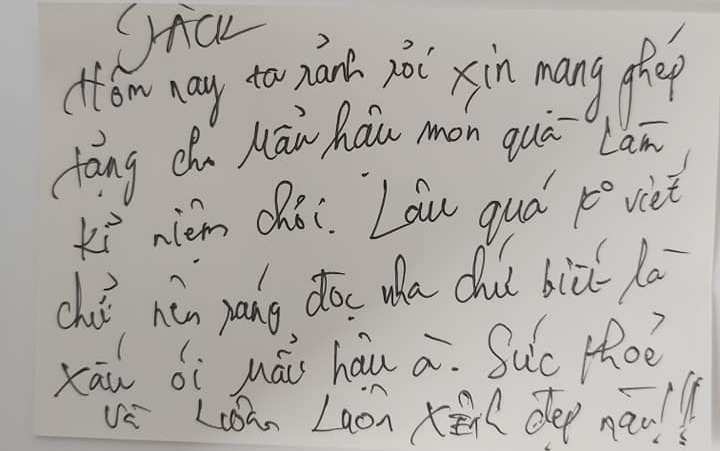 JACK
Hôm nay ta rảnh rỗi xin mang ghép
tặng cho Mẫu hâu món quà Làm
kỉ niệm chơi. Lâu quá k° viết
chử nên ráng đọc nha chứ biết là
xấu ói Mẫu hâu à. Sức khoẻ
và Luôn Luôn Xinh đẹp nàu!!!